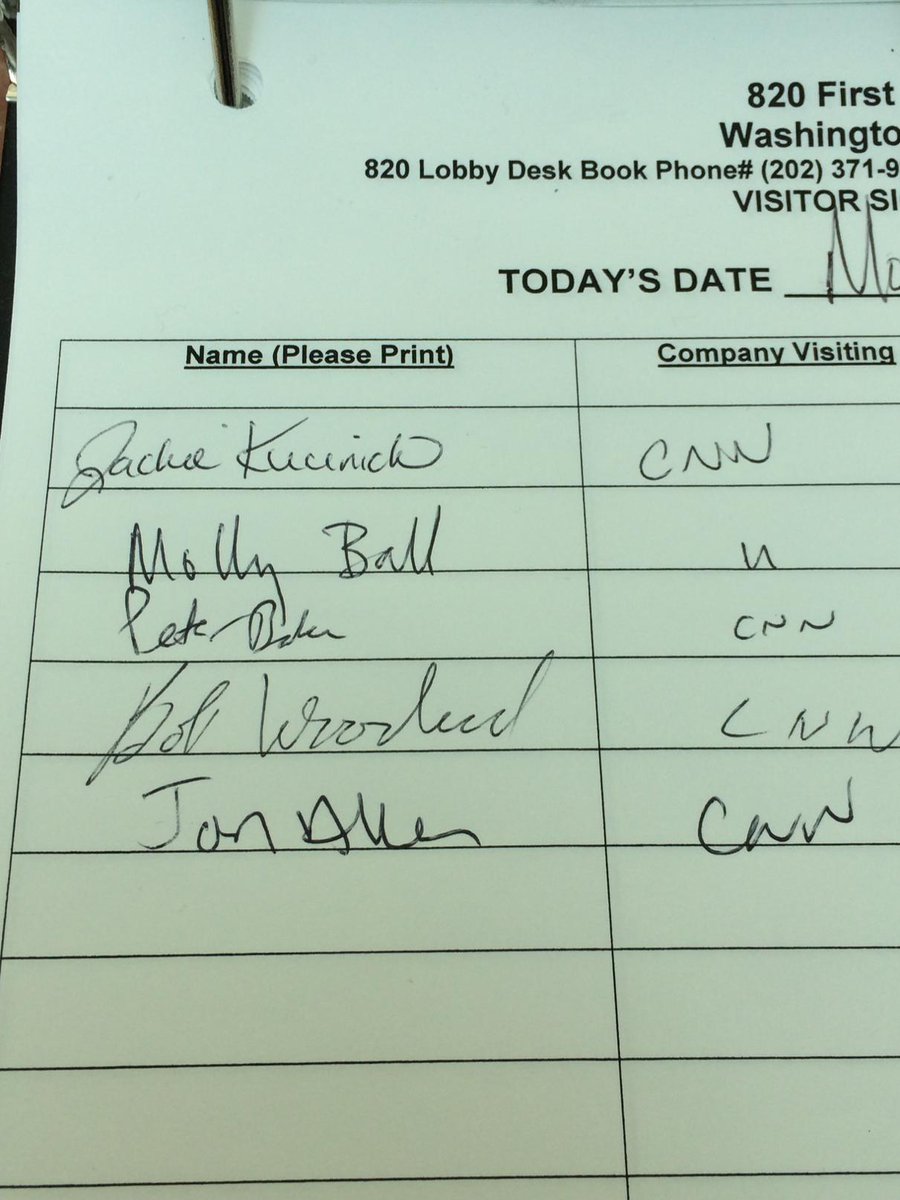 820 First
Washingto
820 Lobby Desk Book Phone# (202) 371-9
VISITOR SI
TODAY'S DATE Mo
Name (Please Print) Company Visiting
Jackie Kucinich CNN
Molly Ball "
Peter Baker CNN
Bob Woodward CNN
Jon Allen CNN